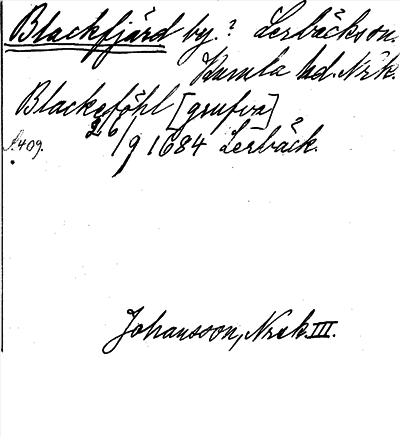 Blackfjärd by.? Lerbäckssn.
Kumla hd. Nrk.
Blackeföhl [grufva]
26/9 1684 Lerbäck.
f. 409.
Johansson, Nrk III.